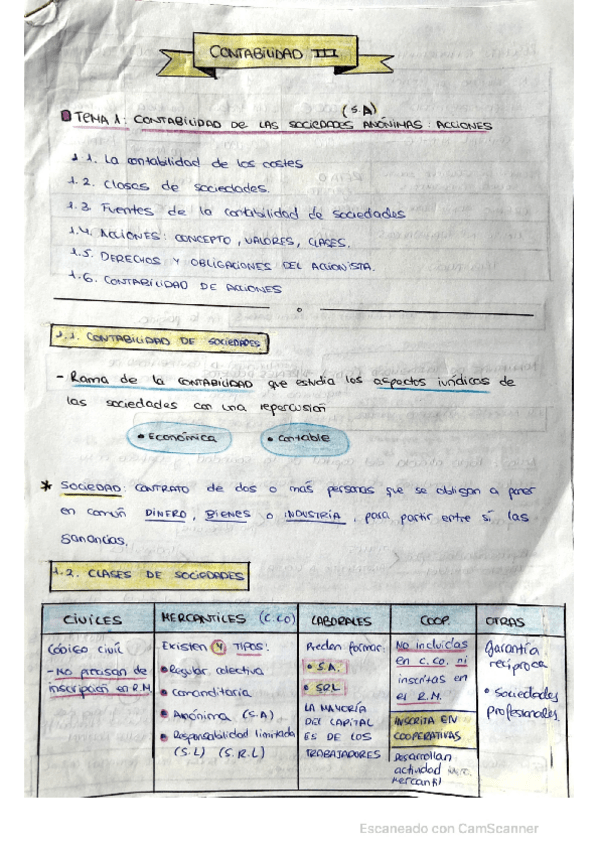 CONTABILIDAD III
(S.A)
TEMA 1: CONTABILIDAD DE LAS SOCIEDADES ANÓNIMAS: ACCIONES
1.1. La contabilidad de los costes
1.2. Clases de sociedades.
1.3 Fuentes de la contabilidad de sociedades
1.4. ACCIONES: CONCEPTO, VALORES, CLASES.
1.5. DERECHOS Y OBLIGACIONES DEL ACCIONISTA.
1.6. CONTABILIDAD DE ACCIONES
1.1. CONTABILIDAD DE SOCIEDADES
- Rama de la CONTABILIDAD que estudia los aspectos jurídicos de
las sociedades con una repercusión
• Económica • Contable
* SOCIEDAD: CONTRATO de dos o más personas que se obligan a poner
en común DINERO, BIENES o INDUSTRIA, para partir entre sí las
ganancias.
1.2. CLASES DE SOCIEDADES
CIVILES
Código civil
- No precisan de
inscripción en R.M.
MERCANTILES (C.CO)
Existen 4 TIPOS:
• Regular colectiva
• Comanditaria
• Anónima (S.A)
• Responsabilidad limitada
(S.L) (S.R.L)
LABORALES
Pueden formar:
• S.A.
• SRL
LA MAYORÍA
DEL CAPITAL
ES DE LOS
TRABAJADORES
COOP.
No incluidas
en C.CO. ni
inscritas en
el R.M.
INSCRITA EN
COOPERATIVAS
Desarrollan
actividad
Mercantil
OTRAS
Garantía
recíproca
• Sociedades
profesionales
Escaneado con CamScanner